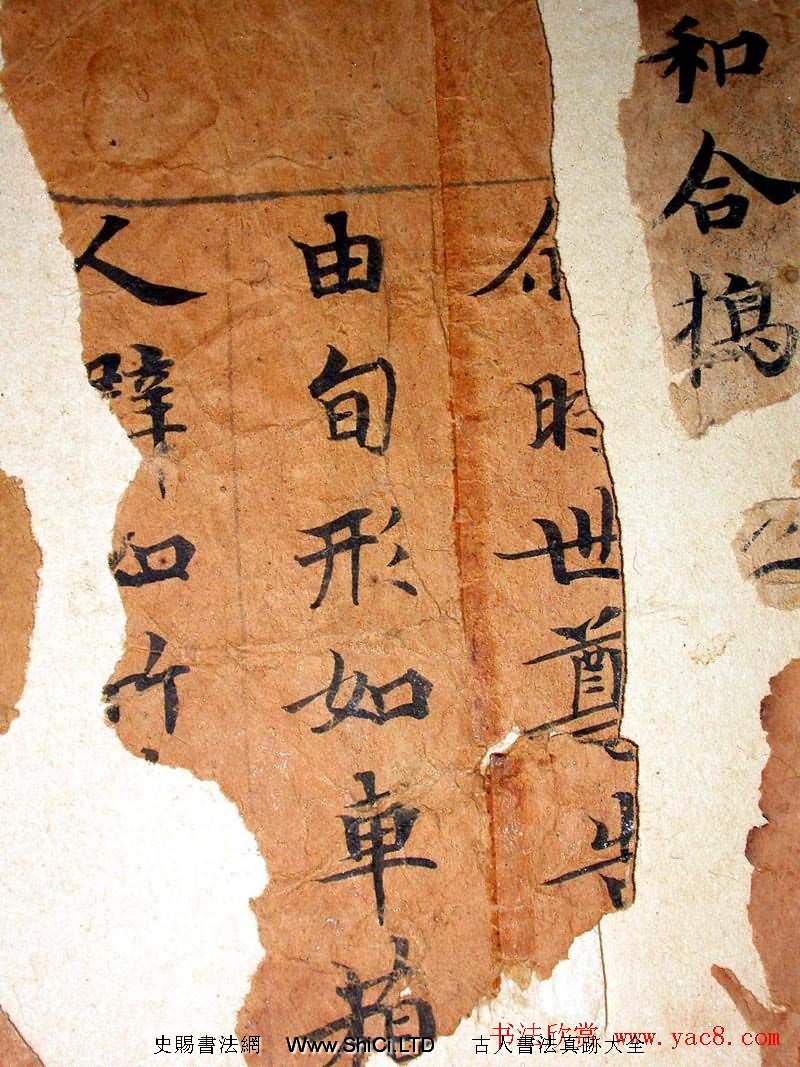 和合搗
尒時世尊
由旬形如車
人
书法欣赏 www.yac8.com
史賜書法網 Www.ShiCi.LTD 古人書法真跡大全